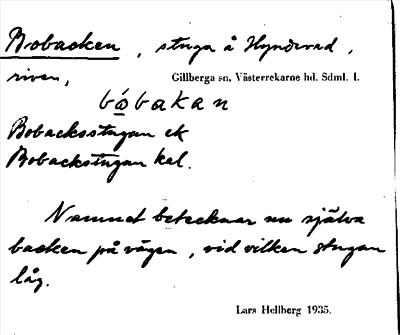 Bobacken, stuga å Hyndevad,
riven,
Gillberga sn. Västerrekarne hd. Sdml. l.
bóbakan
Bobacksstugan ek
Bobackstugan kal.
Namnet betecknar nu själva
backen på vägen, vid vilken stugan
låg.
Lars Hellberg 1935.